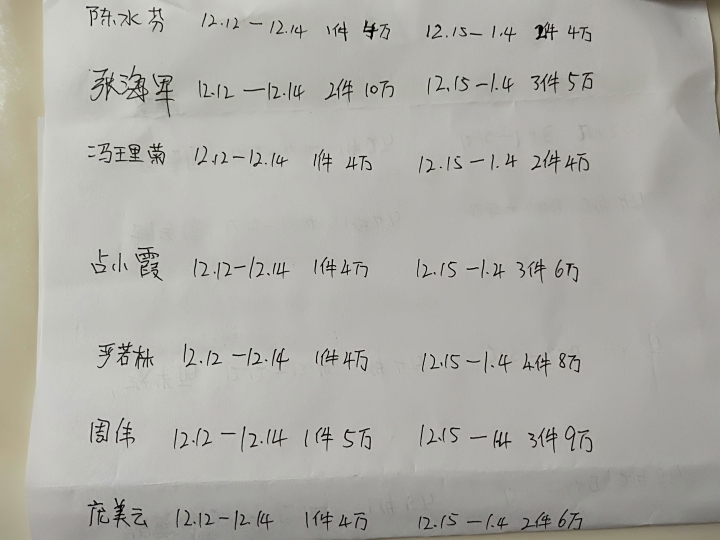 陈水芬 12.12－12.14 1件 4万 12.15－1.4 2件 4万
张海军 12.12－12.14 2件 10万 12.15－1.4 3件 5万
冯理菊 12.12－12.14 1件 4万 12.15－1.4 2件 4万
占小霞 12.12－12.14 1件 4万 12.15－1.4 3件 6万
严若林 12.12－12.14 1件 4万 12.15－1.4 4件 8万
周伟 12.12－12.14 1件 5万 12.15－1.4 3件 9万
庞美云 12.12－12.14 1件 4万 12.15－1.4 2件 6万